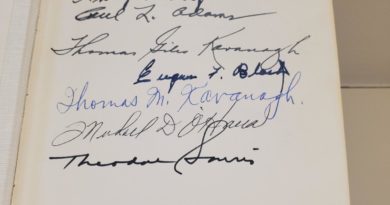 Paul L. Adams
Thomas Giles Kavanagh
Eugene F. Black
Thomas M. Kavanagh.
Michael D. O'Hara
Theodore Souris